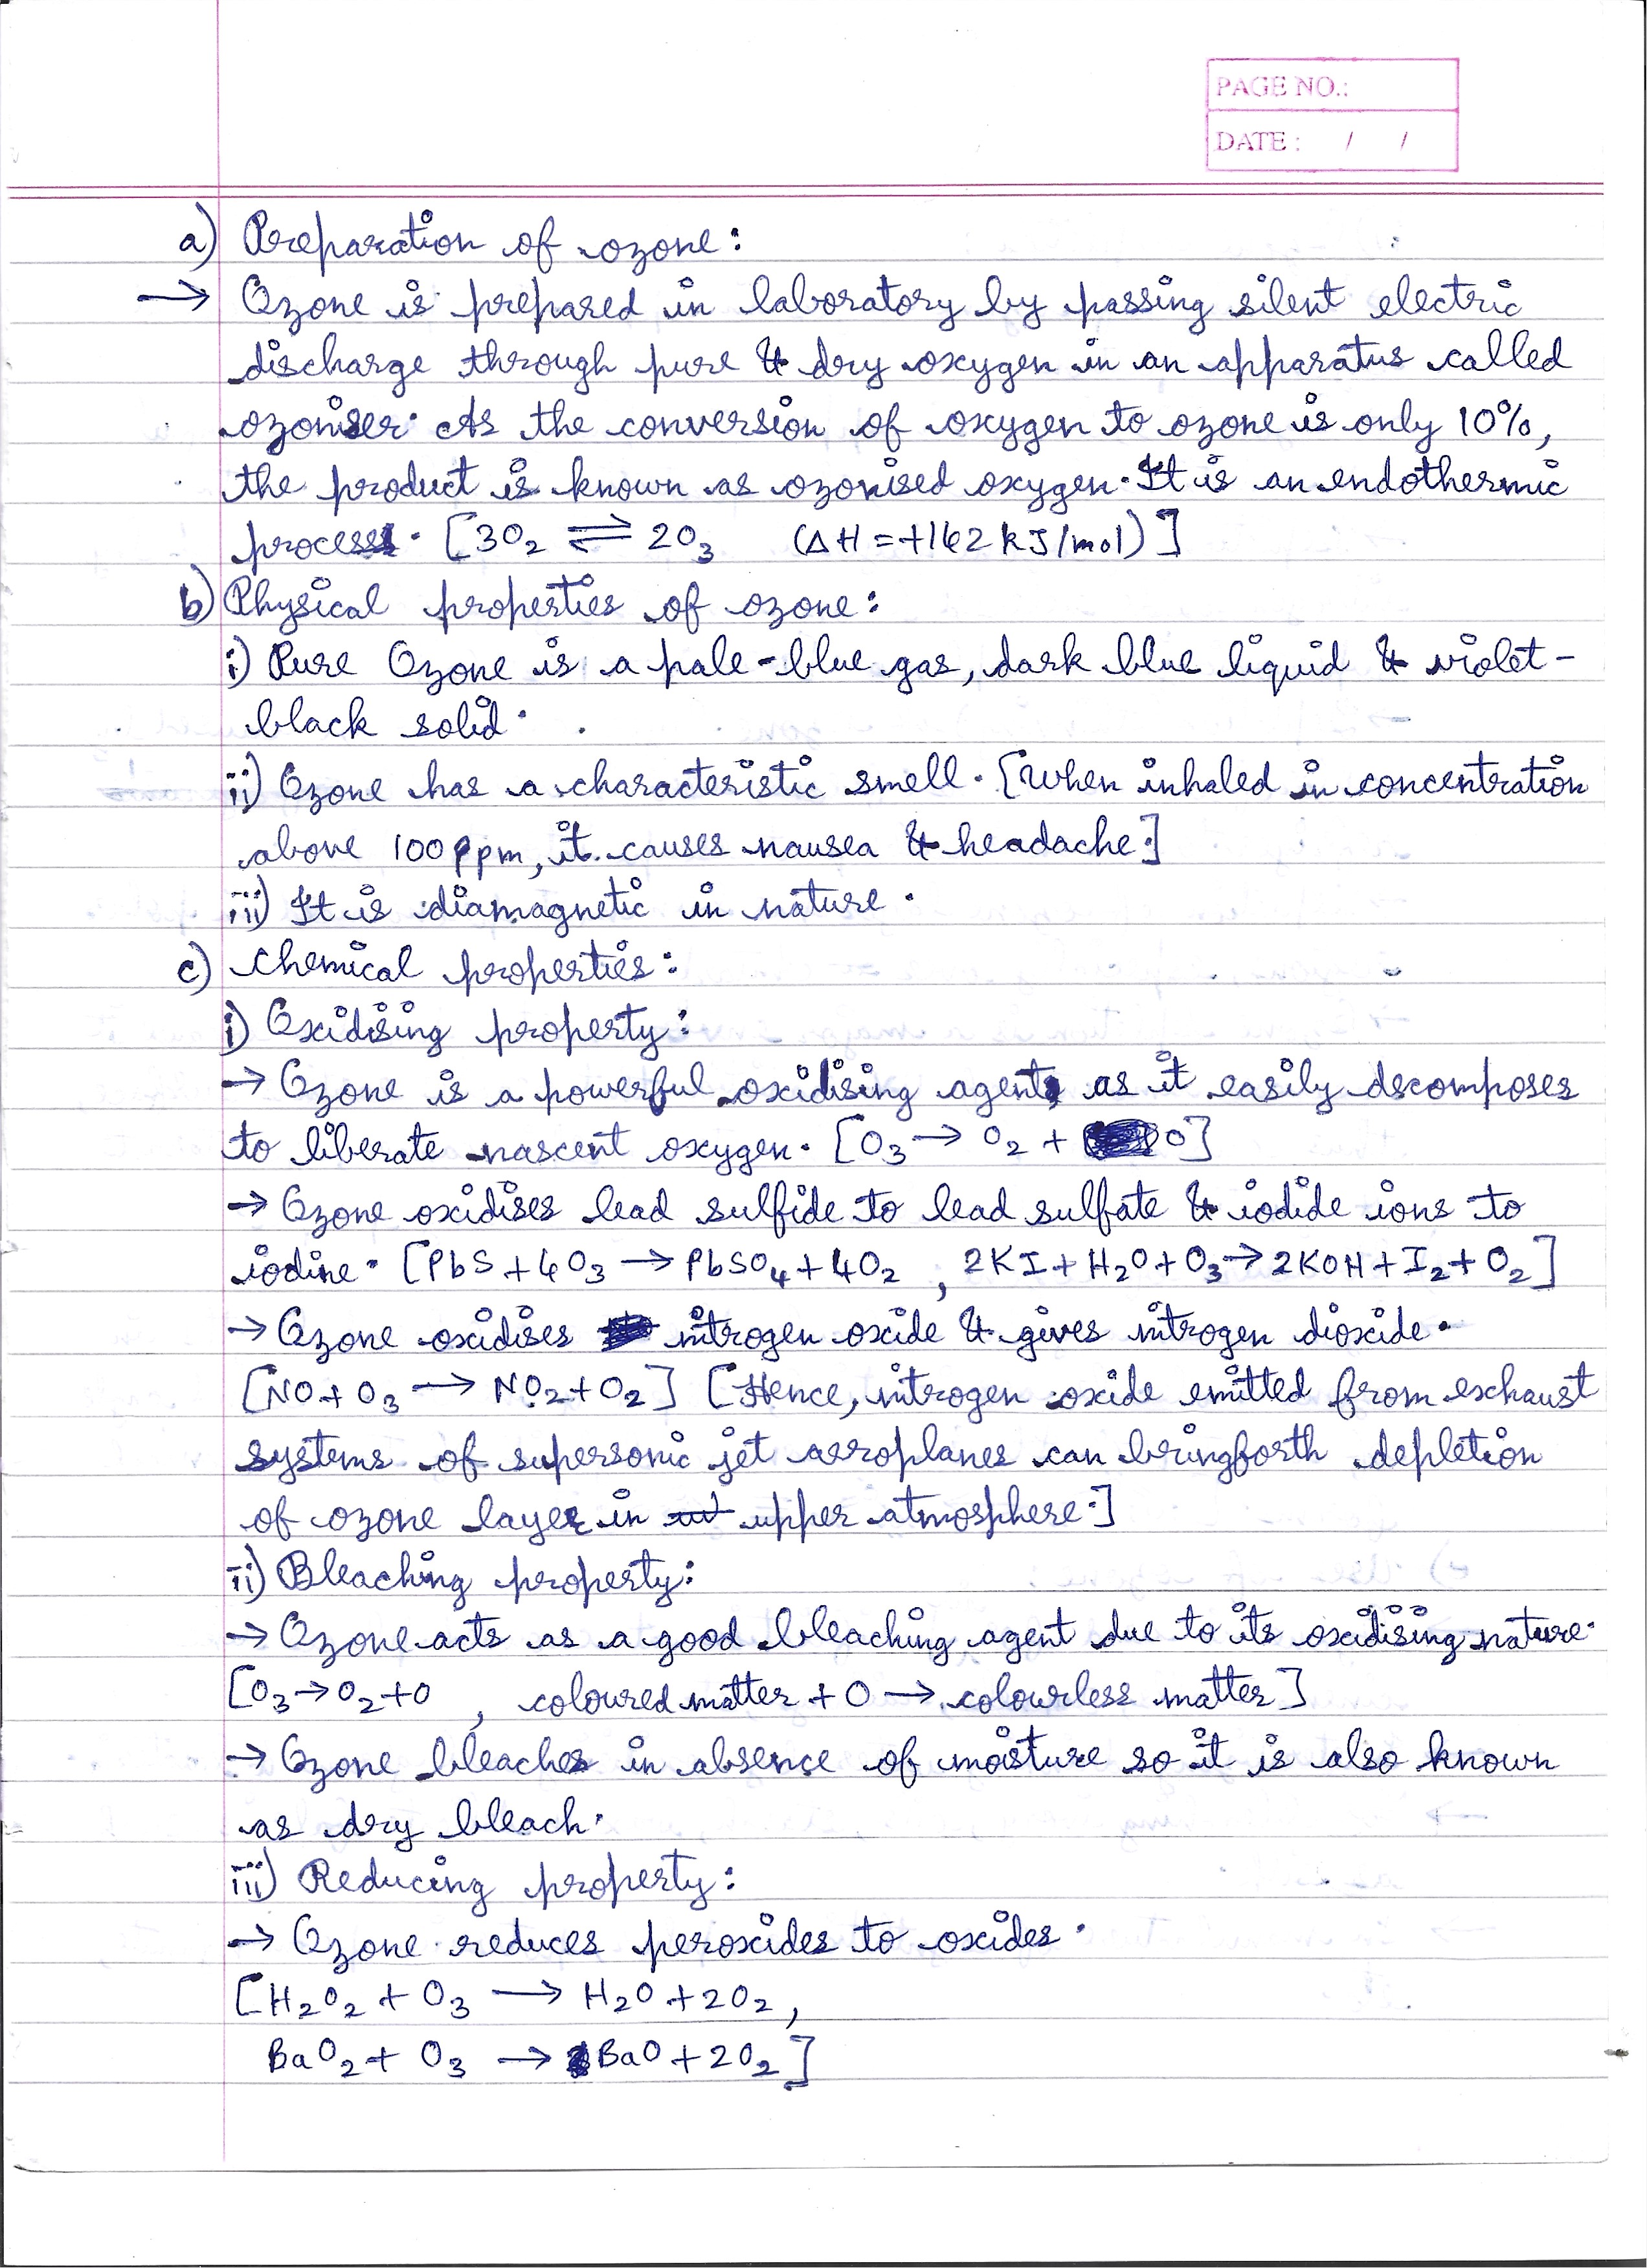 PAGE NO.:
DATE : / /
a) Preparation of ozone:
→ Ozone is prepared in laboratory by passing silent electric
discharge through pure & dry oxygen in an apparatus called
ozoniser. As the conversion of oxygen to ozone is only 10%,
the product is known as ozonised oxygen. It is an endothermic
process. [3O₂ ⇌ 2O₃ (ΔH = +142 kJ/mol)]
b) Physical properties of ozone:
i) Pure Ozone is a pale-blue gas, dark blue liquid & violet-
black solid.
ii) Ozone has a characteristic smell. [When inhaled in concentration
above 100 ppm, it causes nausea & headache.]
iii) It is diamagnetic in nature.
c) Chemical properties:
i) Oxidising property:
→ Ozone is a powerful oxidising agent as it easily decomposes
to liberate nascent oxygen. [O₃ → O₂ + O]
→ Ozone oxidises lead sulfide to lead sulfate & iodide ions to
iodine. [PbS + 4O₃ → PbSO₄ + 4O₂ , 2KI + H₂O + O₃ → 2KOH + I₂ + O₂]
→ Ozone oxidises nitrogen oxide & gives nitrogen dioxide.
[NO + O₃ → NO₂ + O₂] [Hence, nitrogen oxide emitted from exhaust
systems of supersonic jet aeroplanes can bringforth depletion
of ozone layer in upper atmosphere.]
ii) Bleaching property:
→ Ozone acts as a good bleaching agent due to its oxidising nature.
[O₃ → O₂ + O , coloured matter + O → colourless matter]
→ Ozone bleaches in absence of moisture so it is also known
as dry bleach.
iii) Reducing property:
→ Ozone reduces peroxides to oxides.
[H₂O₂ + O₃ → H₂O + 2O₂,
BaO₂ + O₃ → BaO + 2O₂]